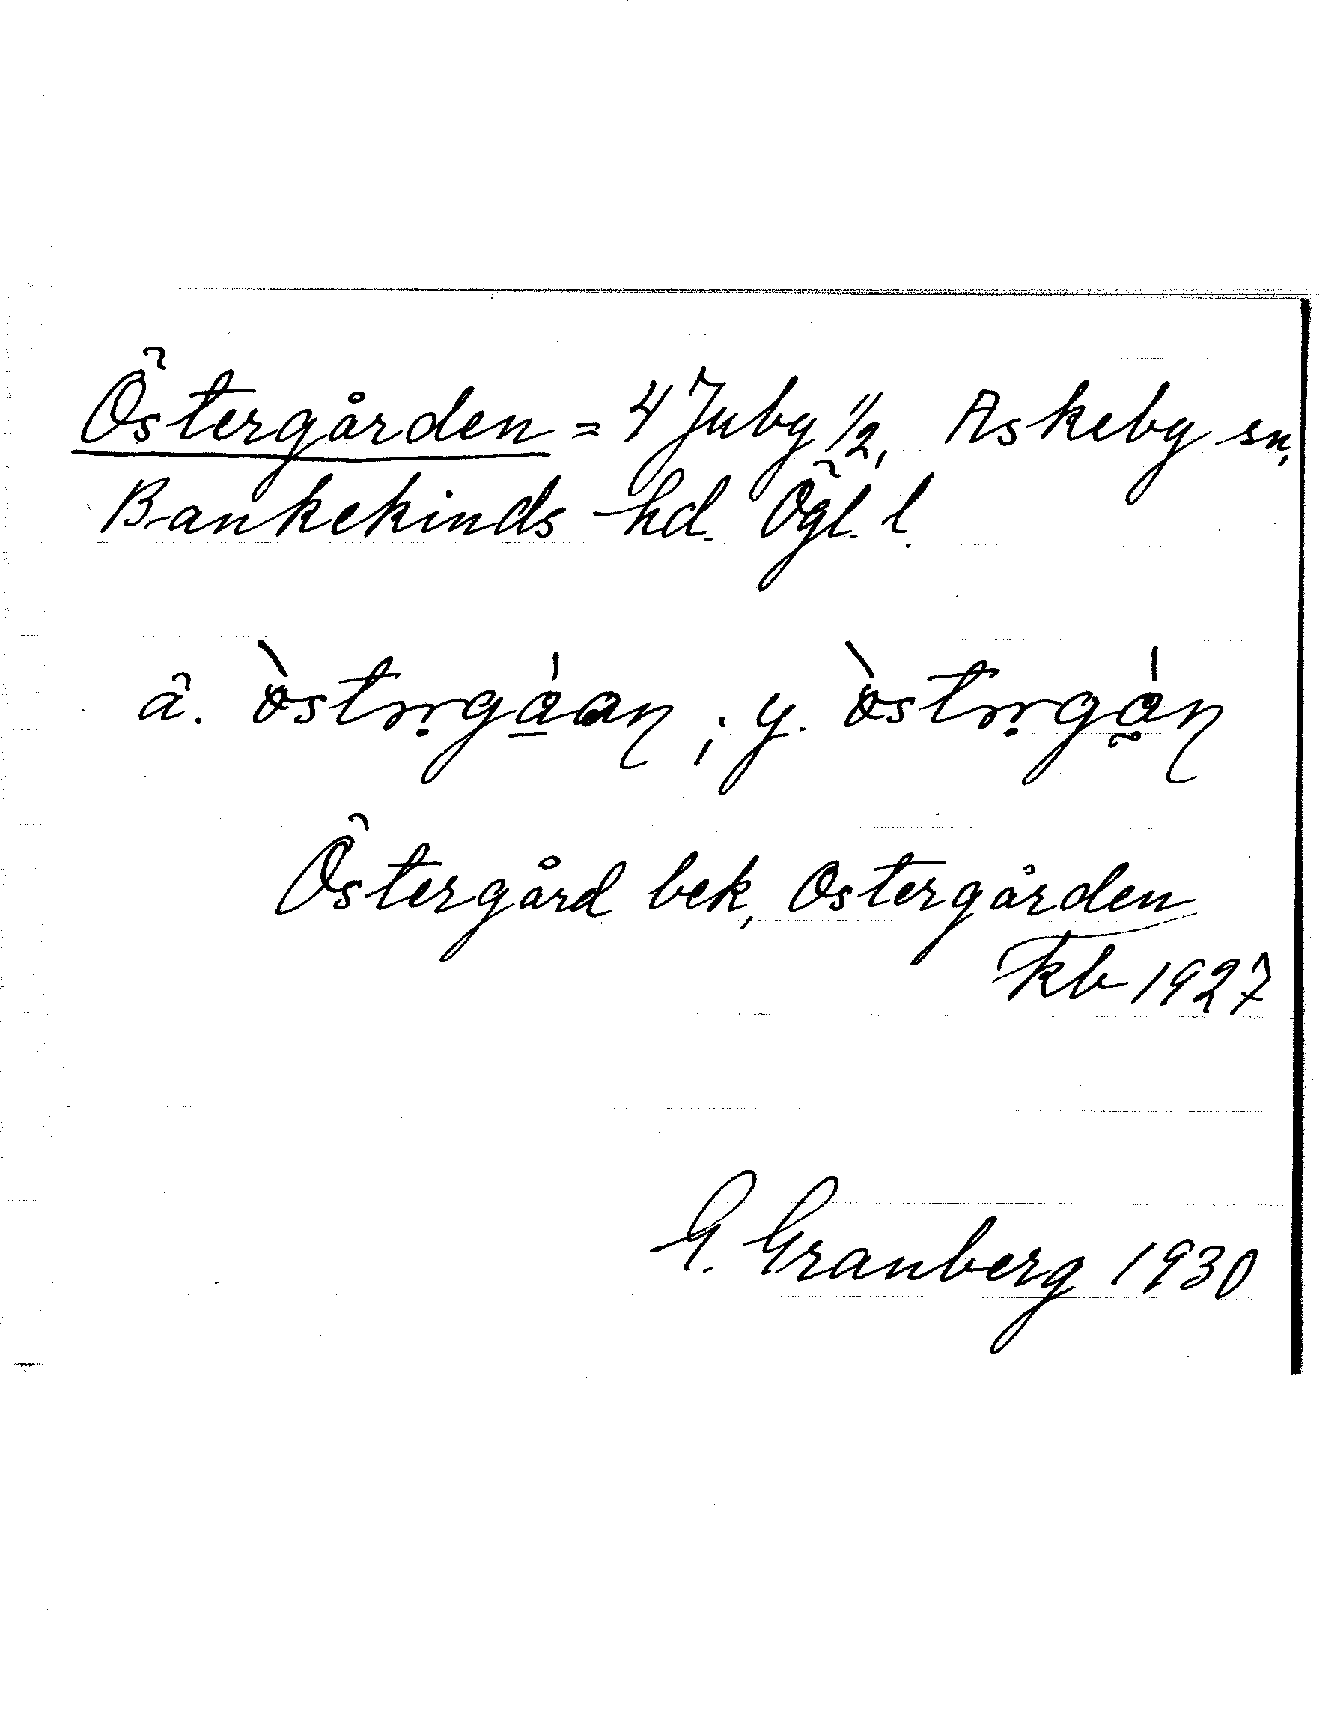 Östergården = 4 Juby 1/2, Askeby sn,
Bankekinds hd. Ögl. l.
ä. ; y.
Östergård bek, Östergården
kb 1927
G. Granberg 1930